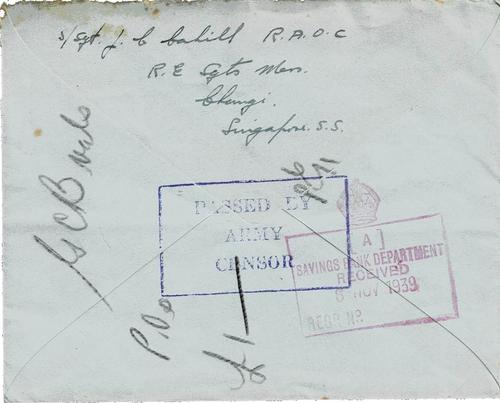 S/Sgt. J. C Cahill R.A.O.C
R.E Sgts Mess.
Changi.
Singapore. S.S.
PASSED BY
ARMY
CENSOR
[A]
SAVINGS BANK DEPARTMENT
RECEIVED
8 NOV 1939
REGR. Nº.
£1